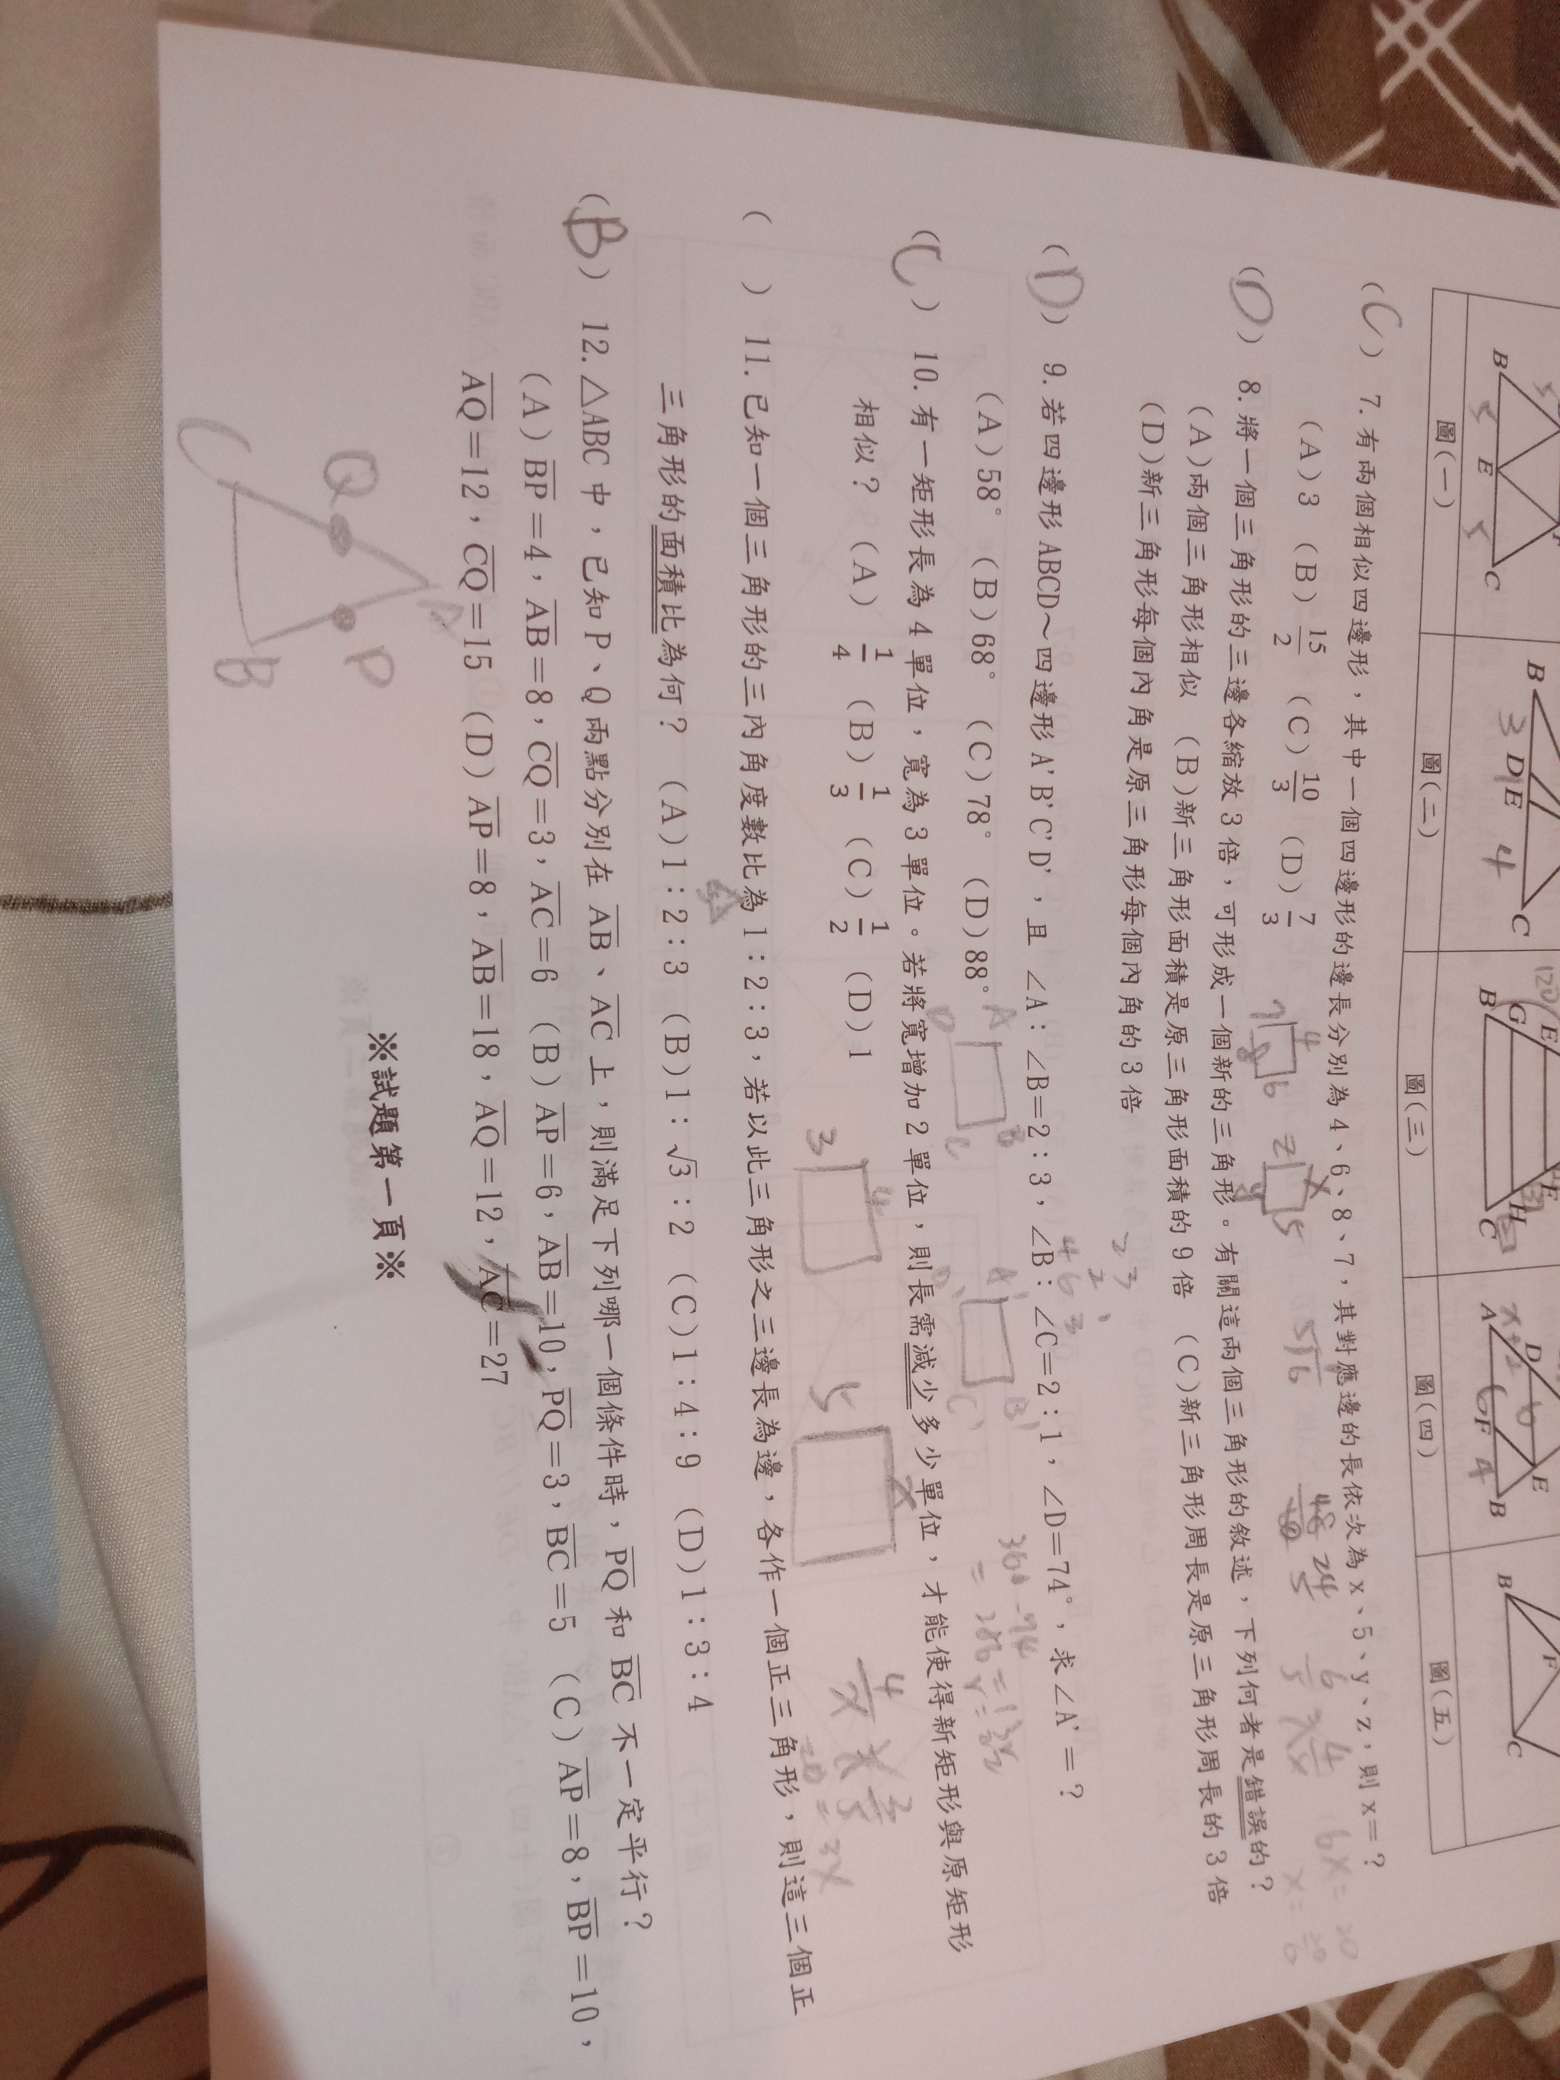 B E C
B D E C
3 4
120
E F
G H
B C
D E
A F B
x+2 6 4
F
B C
圖(一) 圖(二) 圖(三) 圖(四) 圖(五)
(C) 7.有兩個相似四邊形，其中一個四邊形的邊長分別為4、6、8、7，其對應邊的長依次為x、5、y、z，則x=？
(A)3 (B)15/2 (C)10/3 (D)7/3
7 4 6 8
z x 5 y
6x=20
(D) 8.將一個三角形的三邊各縮放3倍，可形成一個新的三角形。有關這兩個三角形的敘述，下列何者是錯誤的？
(A)兩個三角形相似 (B)新三角形面積是原三角形面積的9倍 (C)新三角形周長是原三角形周長的3倍
(D)新三角形每個內角是原三角形每個內角的3倍
2 3
2 1
4 6 3
(D) 9.若四邊形ABCD~四邊形A'B'C'D'，且 ∠A：∠B=2：3，∠B：∠C=2：1，∠D=74°，求∠A'=？
(A)58° (B)68° (C)78° (D)88°
A B C D
A' B' C' D'
360-74
=286
(C) 10.有一矩形長為4單位，寬為3單位。若將寬增加2單位，則長需減少多少單位，才能使得新矩形與原矩形
相似？(A)1/4 (B)1/3 (C)1/2 (D)1
3 4
5 x
4/x 3/5
20=3x
( ) 11.已知一個三角形的三內角度數比為1：2：3，若以此三角形之三邊長為邊，各作一個正三角形，則這三個正
三角形的面積比為何？ (A)1：2：3 (B)1：√3：2 (C)1：4：9 (D)1：3：4
(B) 12.△ABC中，已知P、Q兩點分別在AB、AC上，則滿足下列哪一個條件時，PQ和BC不一定平行？
(A)BP=4，AB=8，CQ=3，AC=6 (B)AP=6，AB=10，PQ=3，BC=5 (C)AP=8，BP=10，
AQ=12，CQ=15 (D)AP=8，AB=18，AQ=12，AC=27
A
Q P
C B
※試題第一頁※